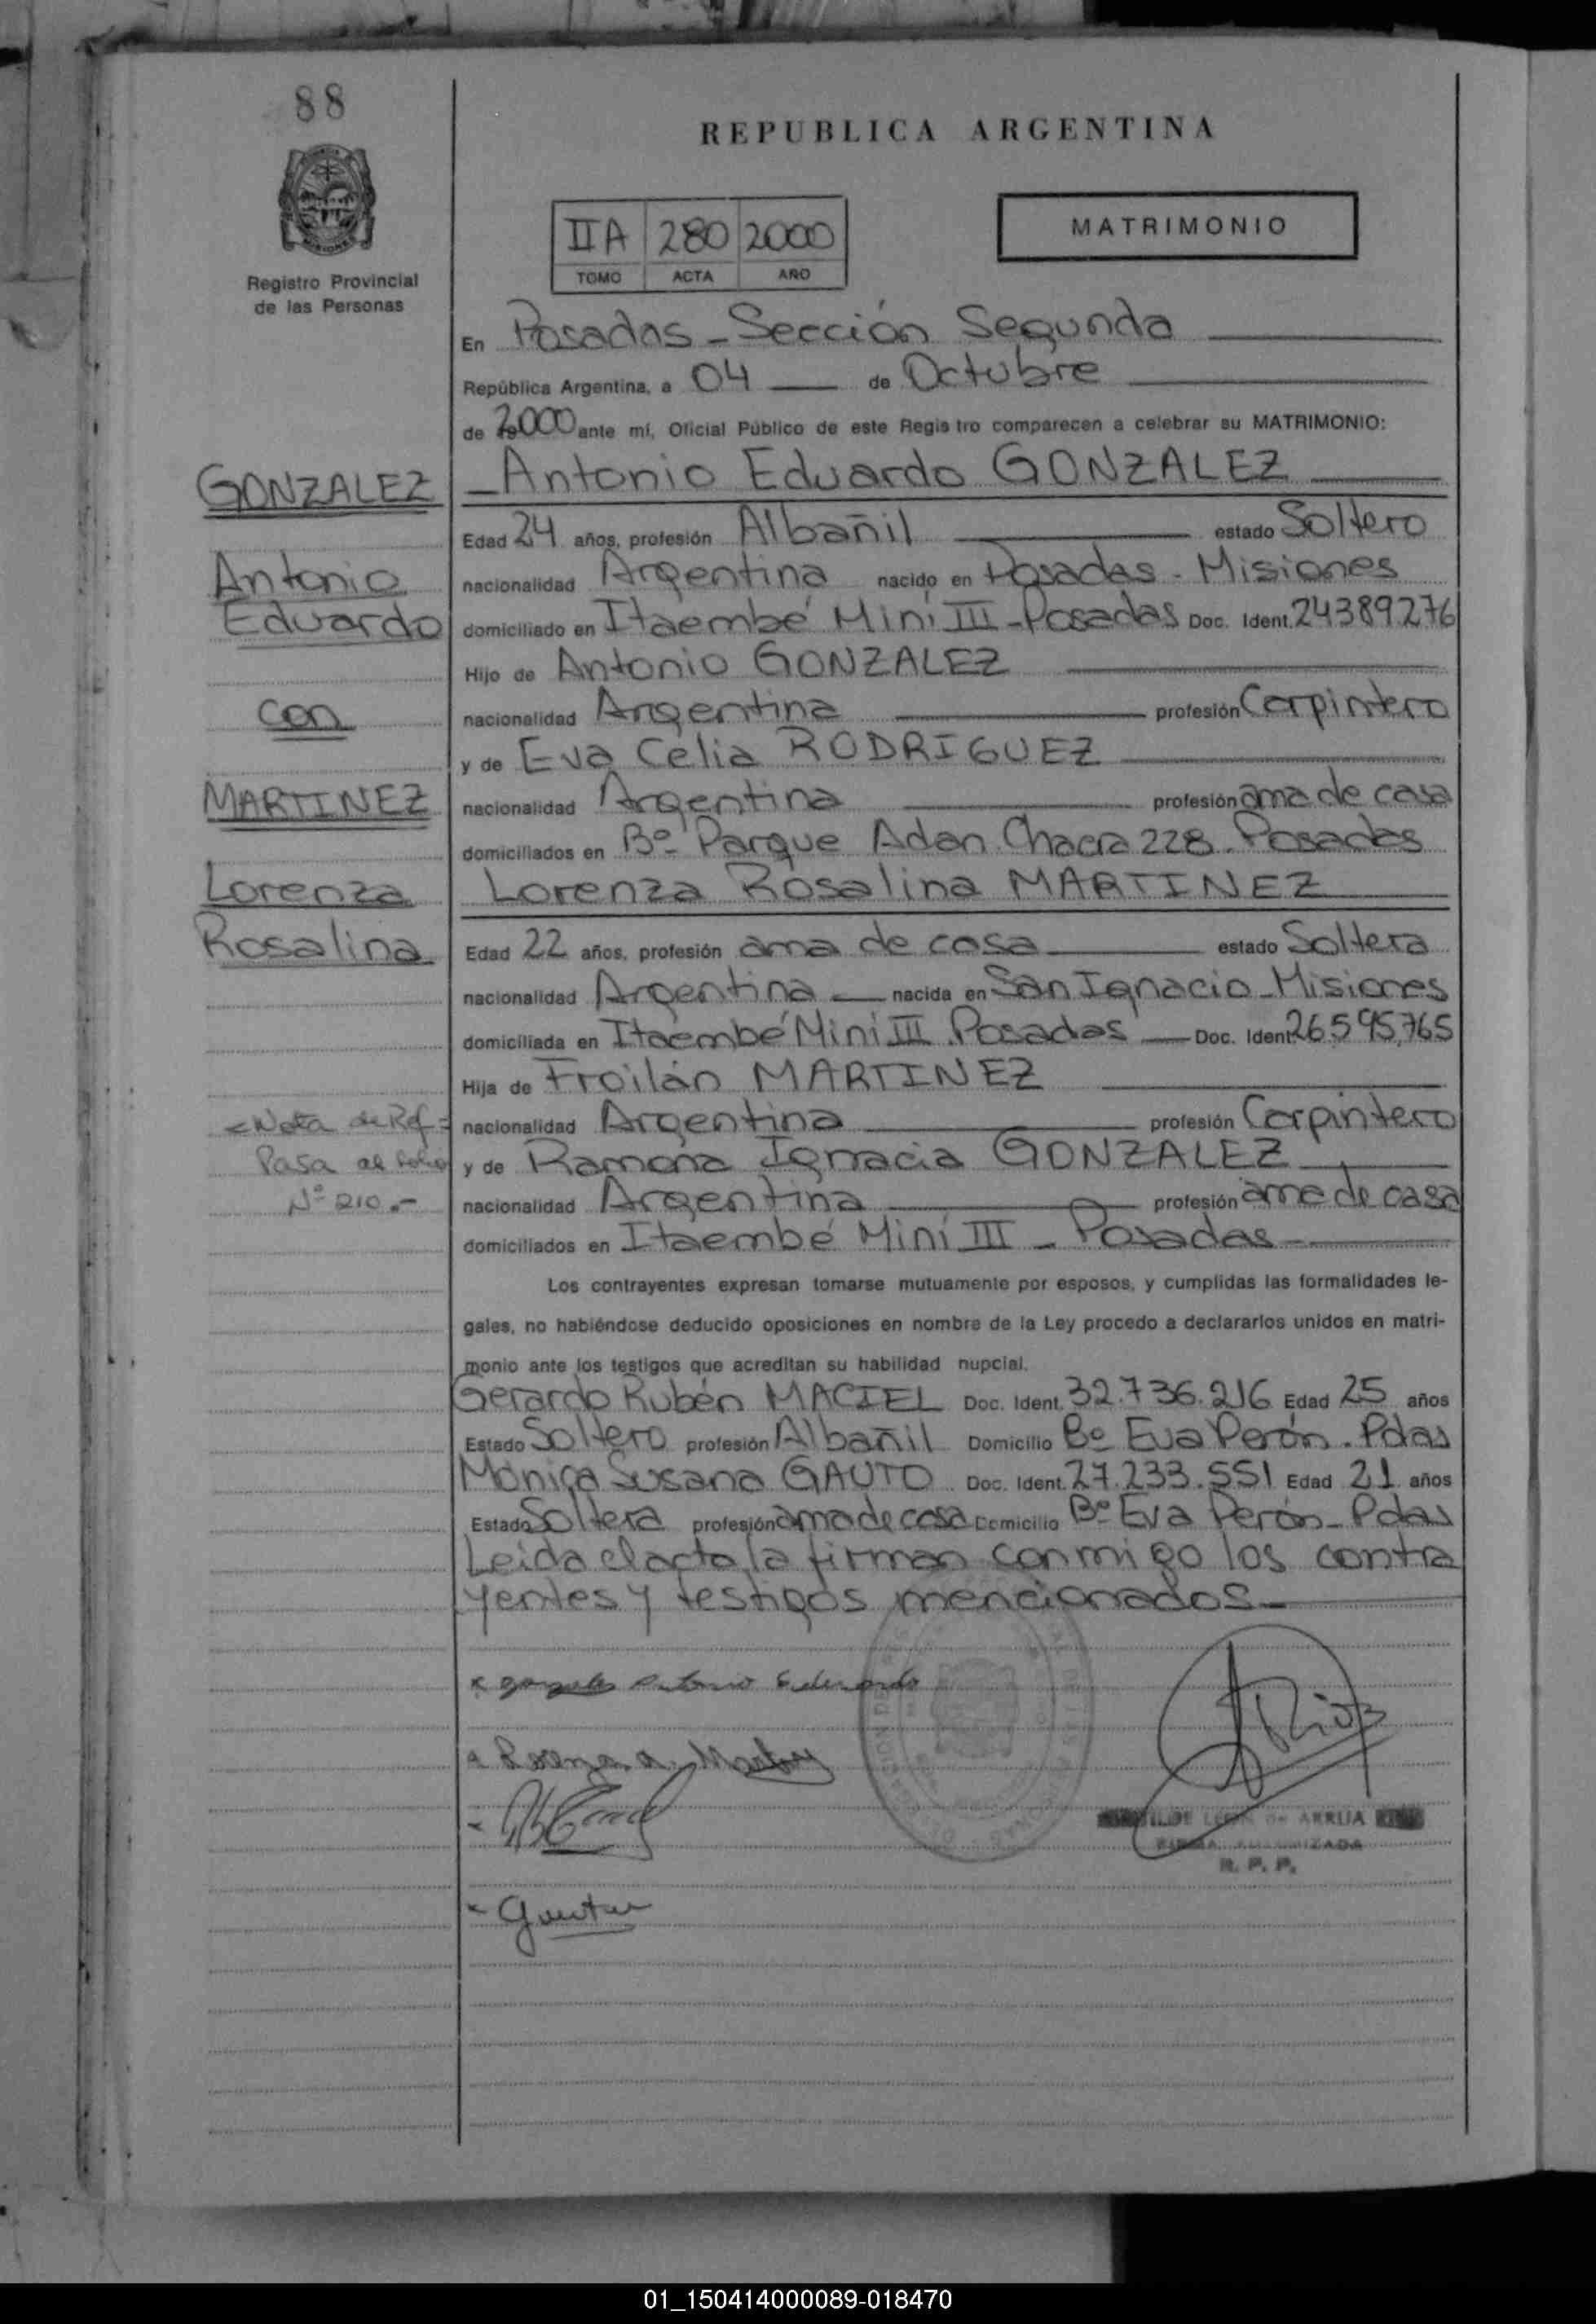 88
REPUBLICA ARGENTINA
Registro Provincial
de las Personas
IIA 280 2000
TOMO ACTA AÑO
MATRIMONIO
En Posadas - Sección Segunda
República Argentina, a 04 de Octubre
de 2000 ante mí, Oficial Público de este Registro comparecen a celebrar su MATRIMONIO:
GONZALEZ
Antonio
Eduardo
con
MARTINEZ
Lorenza
Rosalina
Nota de Ref=
Pasa al folio
Nº 210.-
Antonio Eduardo GONZALEZ
Edad 24 años, profesión Albañil estado Soltero
nacionalidad Argentina nacido en Posadas - Misiones
domiciliado en Itaembé Miní III - Posadas Doc. Ident. 24389276
Hijo de Antonio GONZALEZ
nacionalidad Argentina profesión Carpintero
y de Eva Celia RODRIGUEZ
nacionalidad Argentina profesión ama de casa
domiciliados en Bº Parque Adan Chacra 228. Posadas
Lorenza Rosalina MARTINEZ
Edad 22 años, profesión ama de casa estado Soltera
nacionalidad Argentina nacida en San Ignacio - Misiones
domiciliada en Itaembé Miní III Posadas Doc. Ident. 26.595.765
Hija de Froilán MARTINEZ
nacionalidad Argentina profesión Carpintero
y de Ramona Ignacia GONZALEZ
nacionalidad Argentina profesión ama de casa
domiciliados en Itaembé Miní III - Posadas
Los contrayentes expresan tomarse mutuamente por esposos, y cumplidas las formalidades le-
gales, no habiéndose deducido oposiciones en nombre de la Ley procedo a declararlos unidos en matri-
monio ante los testigos que acreditan su habilidad nupcial.
Gerardo Rubén MACIEL Doc. Ident. 32.736.216 Edad 25 años
Estado Soltero profesión Albañil Domicilio Bº Eva Perón. Pdas
Mónica Susana GAUTO Doc. Ident. 27.233.551 Edad 21 años
Estado Soltera profesión ama de casa Domicilio Bº Eva Perón - Pdas
Leída el acta, la firman conmigo los contra
yentes y testigos mencionados
Antonio Eduardo
Lorenza
ARRUA
R. P. P.
01_150414000089-018470